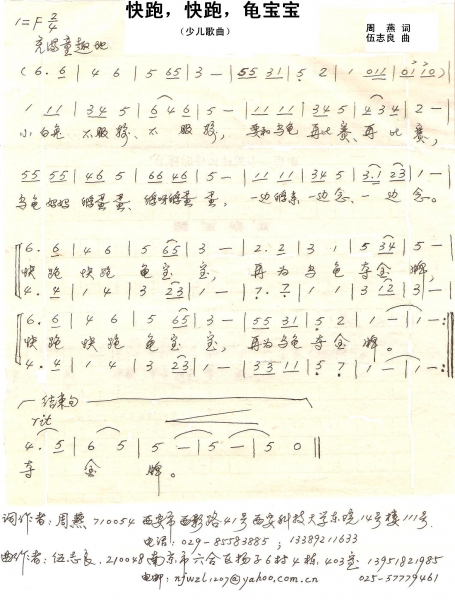 快跑，快跑，龟宝宝
（少儿歌曲）
周 燕 词
伍志良 曲
1=F 2/4
充满童趣地
( 6. 6 | 4 6 | 5 65 | 3 — | 55 31 | 5 2 | 1 011 | 01 10 )
1 11 | 34 5 | 6 46 | 5 — | 11 11 | 34 5 | 4 34 | 2 — |
小白兔 不服输、不 服输， 要和乌龟 再比赛、再 比 赛，
55 55 | 46 5 | 66 46 | 5 — | 11 11 | 34 5 | 3.1 23 | 1 — |
乌龟妈妈 孵蛋蛋、 蛋， 一边 一边念、一 边 念。
6. 6 | 4 6 | 5 65 | 3 — | 2. 2 | 3 1 | 5 34 | 5 — |
快跑 快跑 龟宝 宝， 再为 乌龟 夺金 牌，
4. 4 | 1 4 | 3 23 | 1 — | 7. 7 | 1 1 | 3 12 | 3 — |
6. 6 | 4 6 | 5 65 | 3 — | 55 31 | 5 2 | 1 — | 1 — :|
快跑 快跑 龟宝 宝， 再为乌龟 夺金 牌。
4. 4 | 1 4 | 3 23 | 1 — | 33 11 | 5 7 | 1 — | 1 — :|
结束句
rit
4. 5 | 6 5 | 5 — | 5 — | 5 0 ‖
夺 金 牌。
词作者：周燕 710054 西安市西影路41号西安科技大学东院14号楼111号
电话：029-85583885；13389211633
曲作者：伍志良，210048 南京市六合区扬子6村4栋403室 13951821985
电邮：njwzl1207@yahoo.com.cn 025-57779461